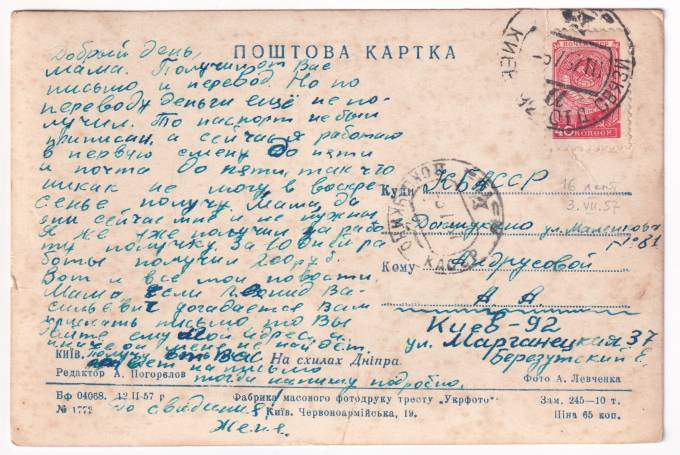 ПОШТОВА КАРТКА
Добрый день,
мама. Получил от Вас
письмо и перевод. Но по
переводу деньги ещё не по-
лучил. То паспорт не был
приписан, а сейчас я работаю
в первую смену до пяти
и почта до пяти, так что
никак не могу в воскре
сенье получу. Мама, да
они сейчас мне и не нужны.
Я же уже получил на рабо
ту получку. За 10 дней ра
боты получил 200 руб.
Вот и все мои новости.
Мама, если Леонид Ва-
сильевич догадается Вам
прислать письмо, то Вы
дайте ему мой адрес.
меня не найдёт.
Получу от Вас
ответ на письмо
тогда напишу подробно.
До свидания
Женя.
ПОШТА СССР
40 КОПЕЕК
КИЕВ
16 лет
3. VII. 57
Куди
КБАССР
Докшукино ул. Маленкова
№ 81
Кому
Андрусовой
А. А.
Киев-92
ул. Марганецкая 37
Березутский Е.
КИЇВ. На схилах Дніпра.
Редактор А. Погорєлов
Фото А. Левченка
Бф 04068. 12 II-57 р
Фабрика масового фотодруку тресту „Укрфото“
Зам. 245—10 т.
№ 1772
Київ. Червоноармійська, 19.
Ціна 65 коп.